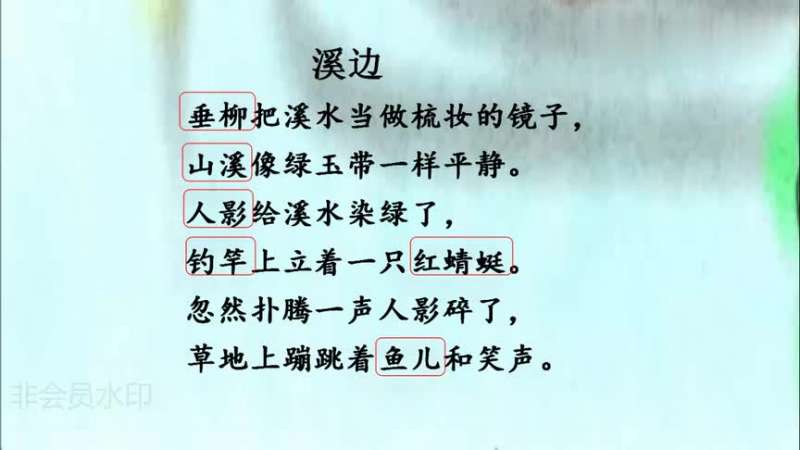 溪边
垂柳把溪水当做梳妆的镜子，
山溪像绿玉带一样平静。
人影给溪水染绿了，
钓竿上立着一只红蜻蜓。
忽然扑腾一声人影碎了，
草地上蹦跳着鱼儿和笑声。
非会员水印